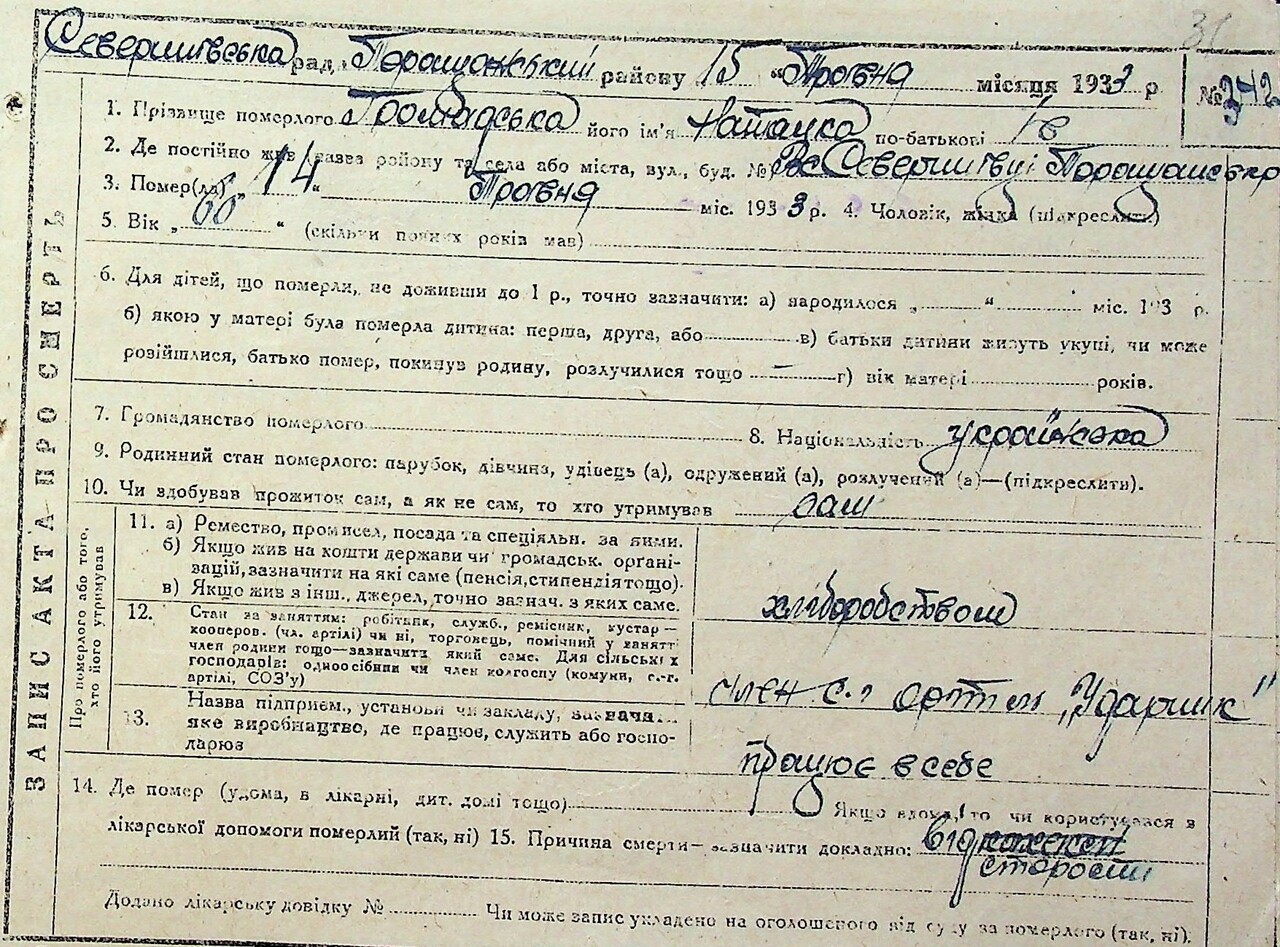 31
рад. Поращанський району 15 "Травня місяця 1933 р № 342
1. Прізвище померлого його ім'я Наталка по-батькові
2. Де постійно жив (назва району та села або міста, вул., буд. №
3. Помер(ла) „14“ Травня міс. 1933 р. 4. Чоловік, жінка (підкреслити)
5. Вік „60“ (скільки повних років мав)
6. Для дітей, що померли, не доживши до 1 р., точно зазначити: а) народилося „ “ міс. 193 р.
б) якою у матері була померла дитина: перша, друга, або в) батьки дитини живуть укупі, чи може
розійшлися, батько помер, покинув родину, розлучилися тощо — г) вік матері років.
7. Громадянство померлого 8. Національність українська
9. Родинний стан померлого: парубок, дівчина, удівець (а), одружений (а), розлучений (а)—(підкреслити).
10. Чи здобував прожиток сам, а як не сам, то хто утримував сам
ЗАПИС АКТА ПРО СМЕРТЬ
Про померлого або того, хто його утримував
11. а) Ремество, промисел, посада та спеціяльн. за ними.
б) Якщо жив на кошти держави чи громадськ. орґані-
зацій, зазначити на які саме (пенсія, стипендія тощо).
в) Якщо жив з інш., джерел, точно зазнач. з яких саме.
хліборобством
12. Стан за заняттям: робітник, служб., ремісник, кустар—
кооперов. (чл. артілі) чи ні, торговець, помічний у занятті
член родини тощо—зазначити який саме. Для сільських
господарів: одноосібник чи член колгоспу (комуни, с.-г.
артілі, СОЗ'у)
член с.г артіли „Ударник"
13. Назва підприєм., установи чи закладу, зазнача...
яке виробництво, де працює, служить або госпо-
дарює
працює в себе
14. Де помер (удома, в лікарні, дит. домі тощо) Якщо вдома, то чи користувався в
лікарської допомоги померлий (так, ні) 15. Причина смерти—зазначити докладно: від
старости
Додано лікарську довідку № Чи може запис укладено на оголошеного від суду за померлого (так, ні).